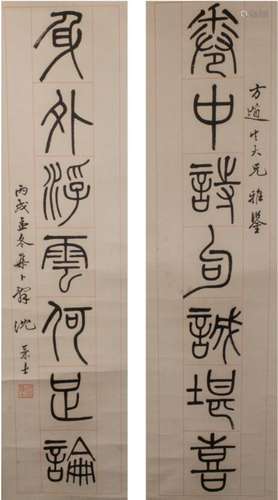 方道生大兄 雅鑒
卷中詩句誠堪喜
身外浮雲何足論
丙戌孟冬集卜辭 沈兼士